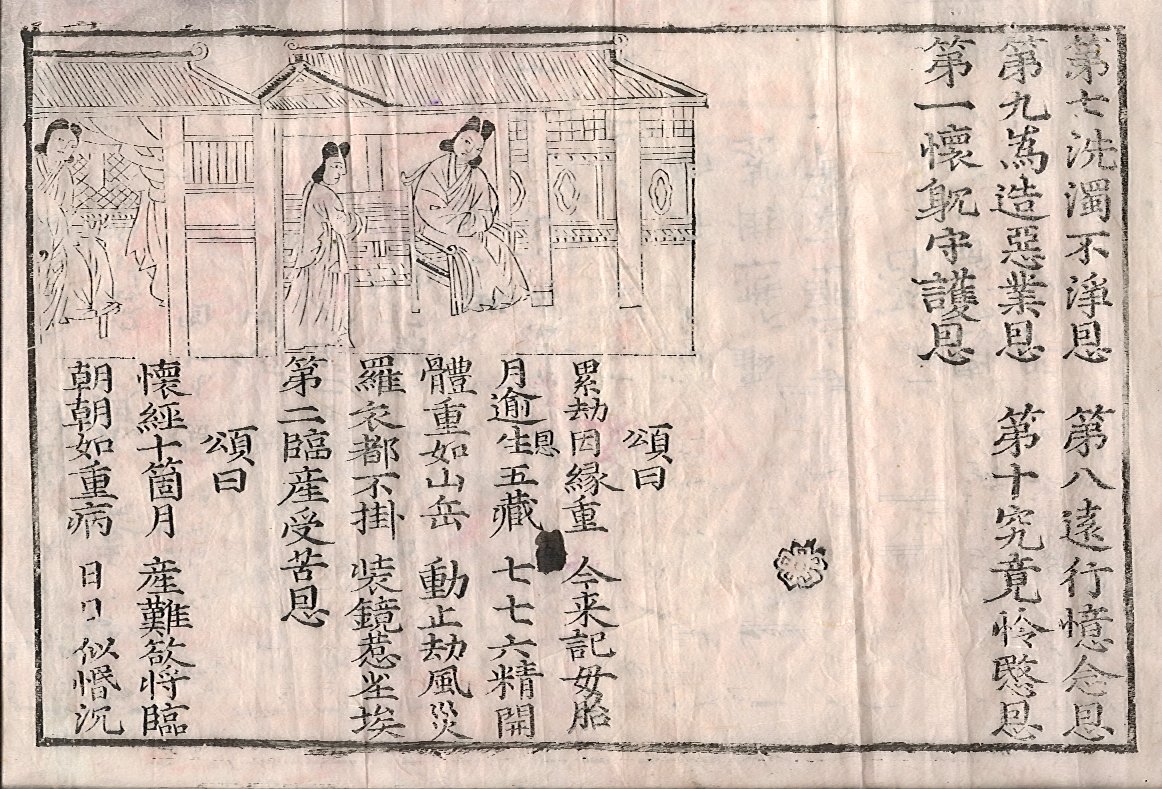 第七洗濁不淨恩 第八遠行憶念恩
第九為造惡業恩 第十究竟怜愍恩
第一懷躭守護恩
頌曰
累劫因緣重 今来記母胎
恩
月逾生五藏 七七六精開
體重如山岳 動止劫風災
羅衣都不掛 裝鏡惹尘埃
第二臨産受苦恩
頌曰
懷經十箇月 産難欲将臨
朝朝如重病 日日似惛沉